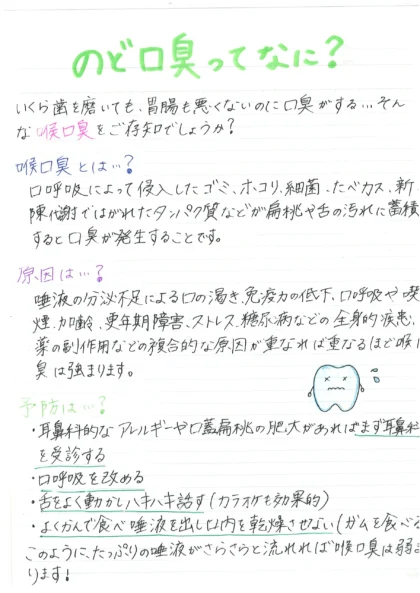 のど口臭ってなに？
いくら歯を磨いても、胃腸も悪くないのに口臭がする…そん
な喉口臭をご存知でしょうか？
喉口臭とは…？
口呼吸によって侵入したゴミ、ホコリ、細菌、たべカス、新
陳代謝ではがれたタンパク質などが扁桃や舌の汚れに蓄積
すると口臭が発生することです。
原因は…？
唾液の分泌不足による口の渇き、免疫力の低下、口呼吸や喫
煙、加齢、更年期障害、ストレス、糖尿病などの全身的疾患、
薬の副作用などの複合的な原因が重なれば重なるほど喉口
臭は強まります。
予防は…？
・耳鼻科的なアレルギーや口蓋扁桃の肥大があればまず耳鼻科
を受診する
・口呼吸を改める
・舌をよく動かしハキハキ話す(カラオケも効果的)
・よくかんで食べ唾液を出し口内を乾燥させない(ガムを食べる
このように、たっぷりの唾液がさらさらと流れれば喉口臭は弱ま
ります！